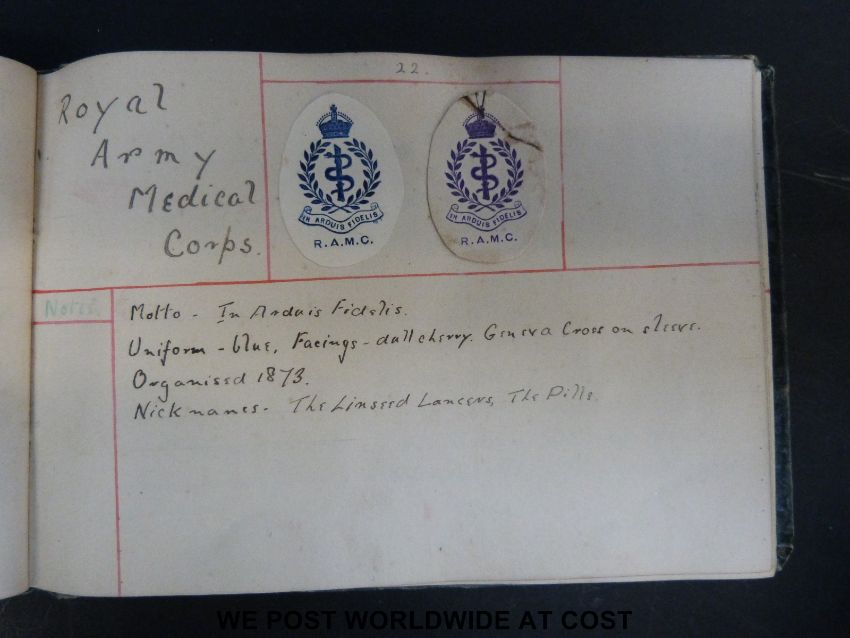 22.
Royal
Army
Medical
Corps.
IN ARDUIS FIDELIS
R.A.M.C.
IN ARDUIS FIDELIS
R.A.M.C.
Notes.
Motto - In Arduis Fidelis.
Uniform - blue, Facings - dull cherry. Geneva Cross on sleeve.
Organised 1873.
Nicknames - The Linseed Lancers, The Pills.
WE POST WORLDWIDE AT COST